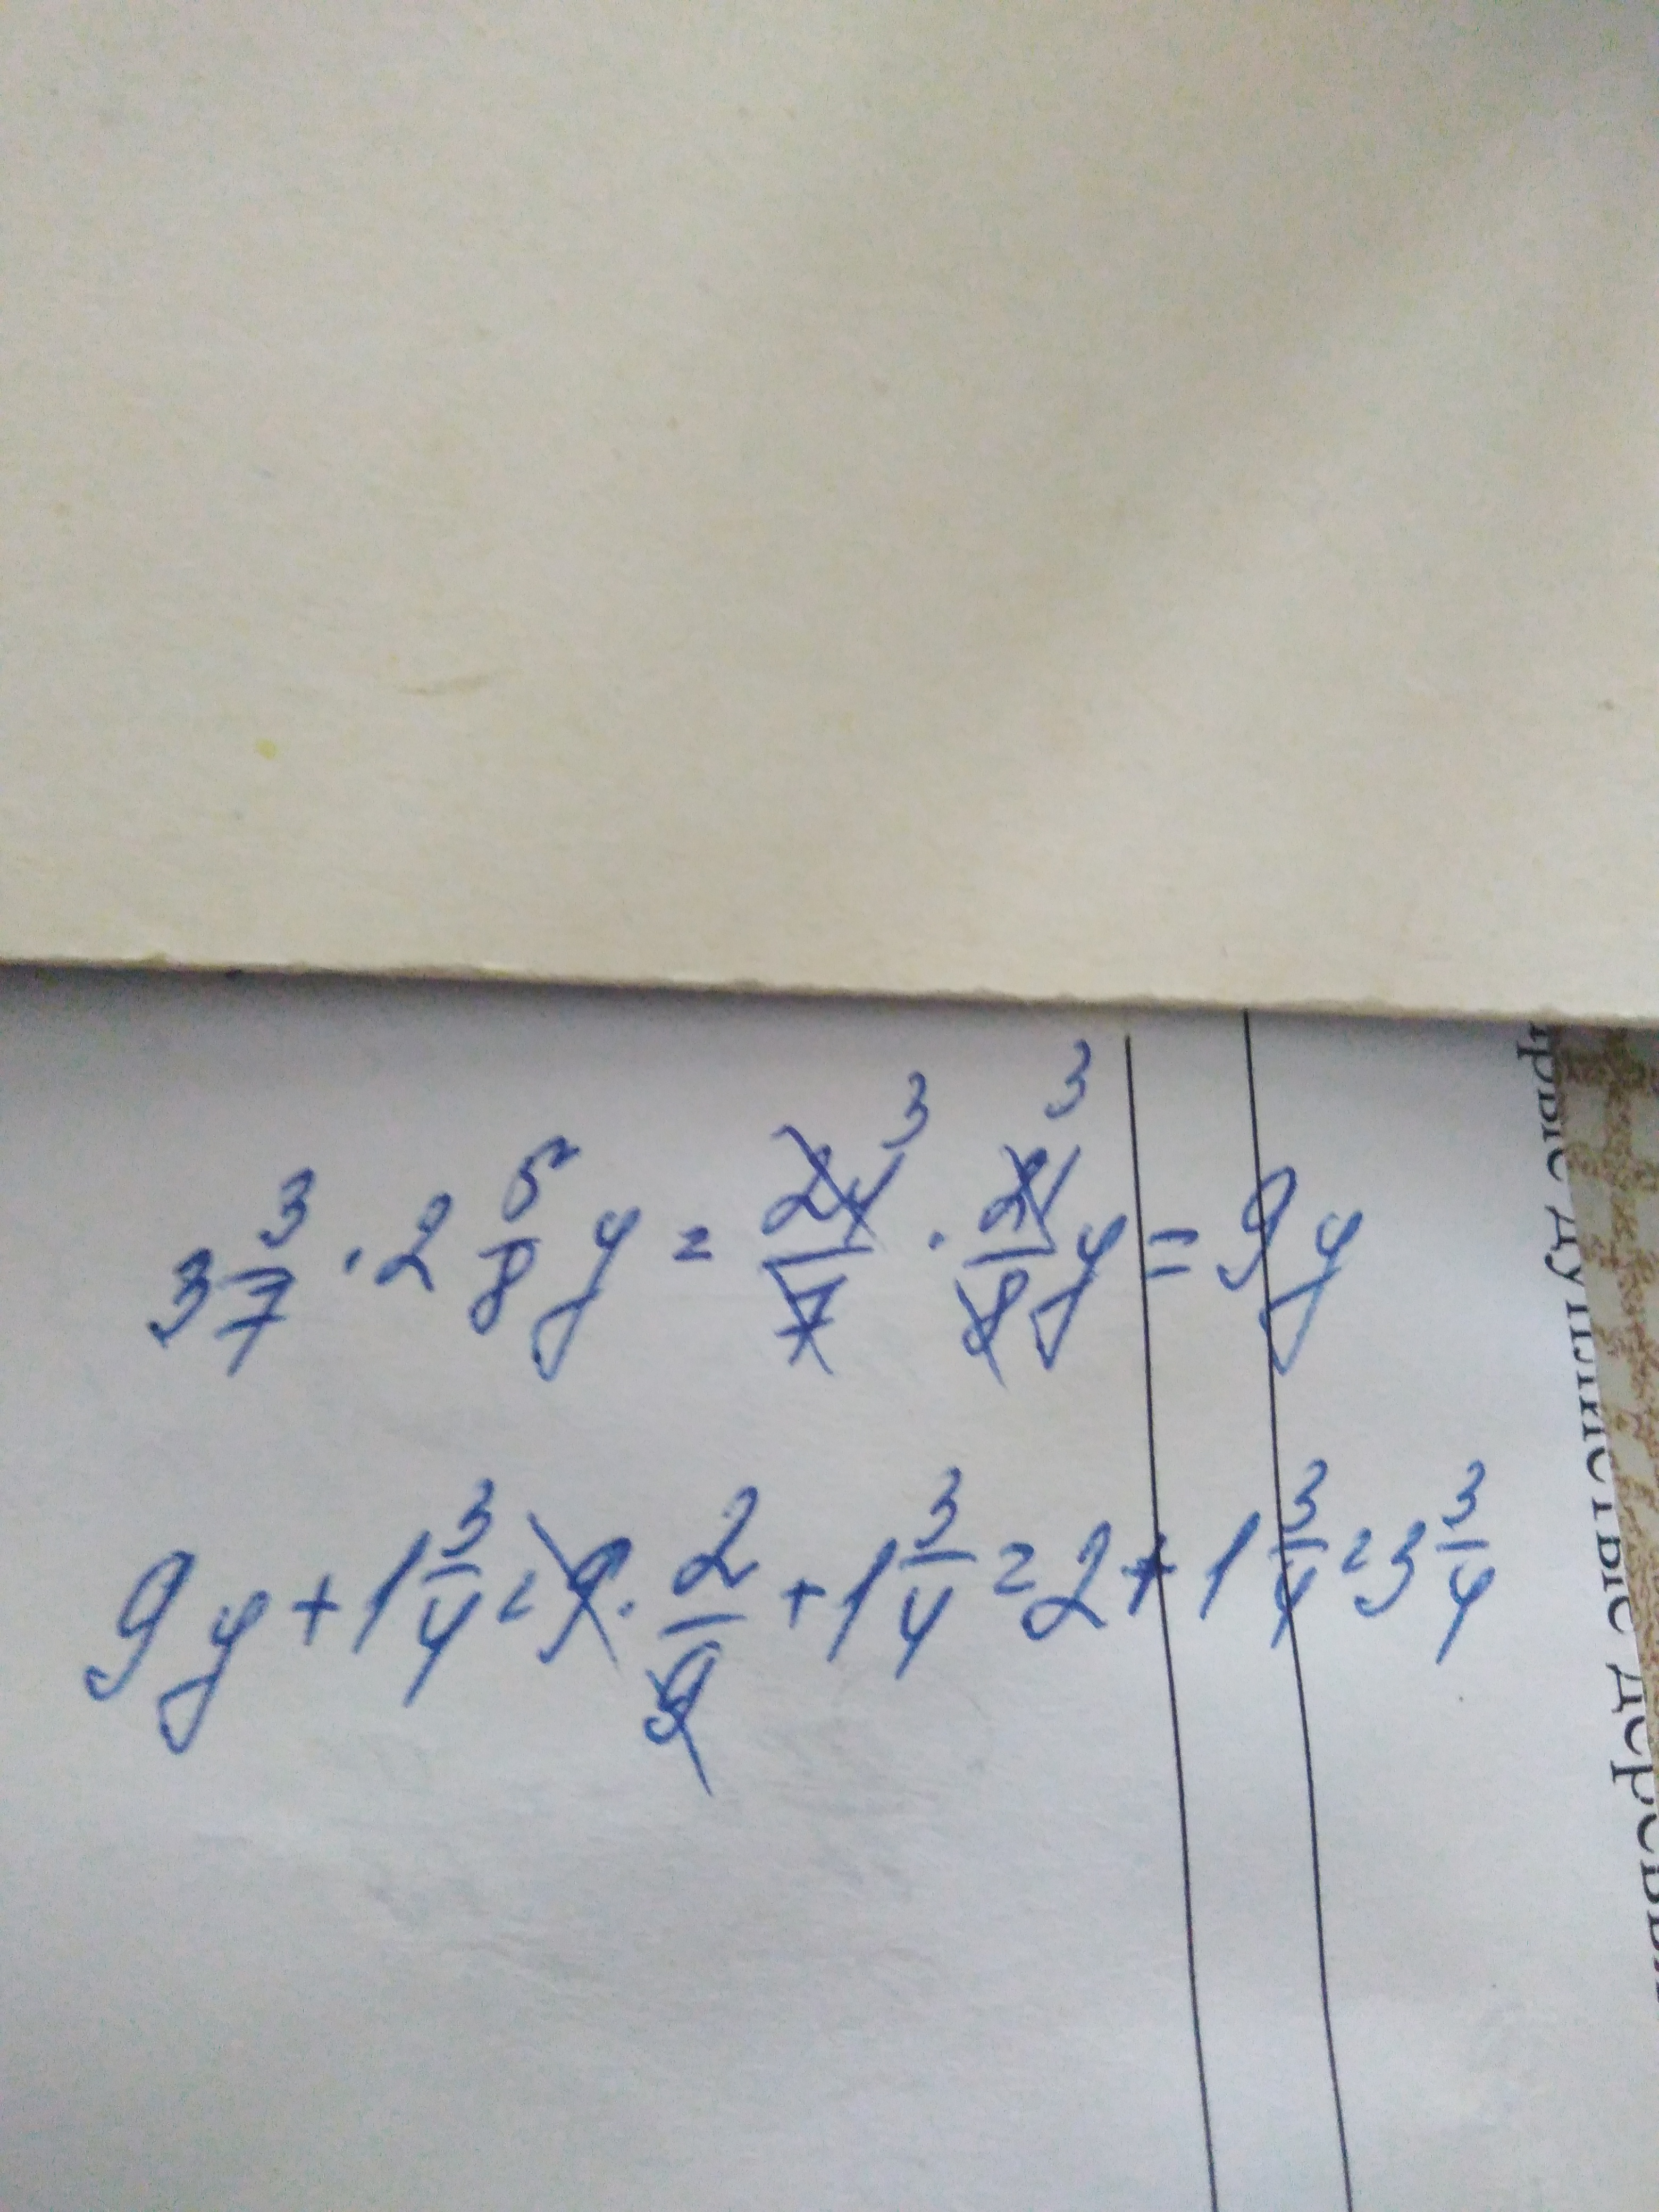 3 3/7 · 2 5/8 y = 24/7 3 · 21/8 3 y = 9y
9y + 1 3/4 = 9 · 2/9 + 1 3/4 = 2 + 1 3/4 = 3 3/4